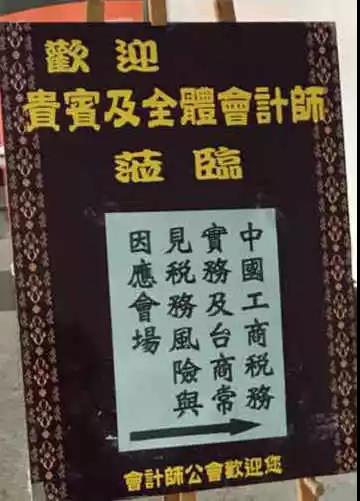 歡迎
貴賓及全體會計師
蒞臨
中國工商稅務
實務及台商常
見稅務風險與
因應會場
會計師公會歡迎您